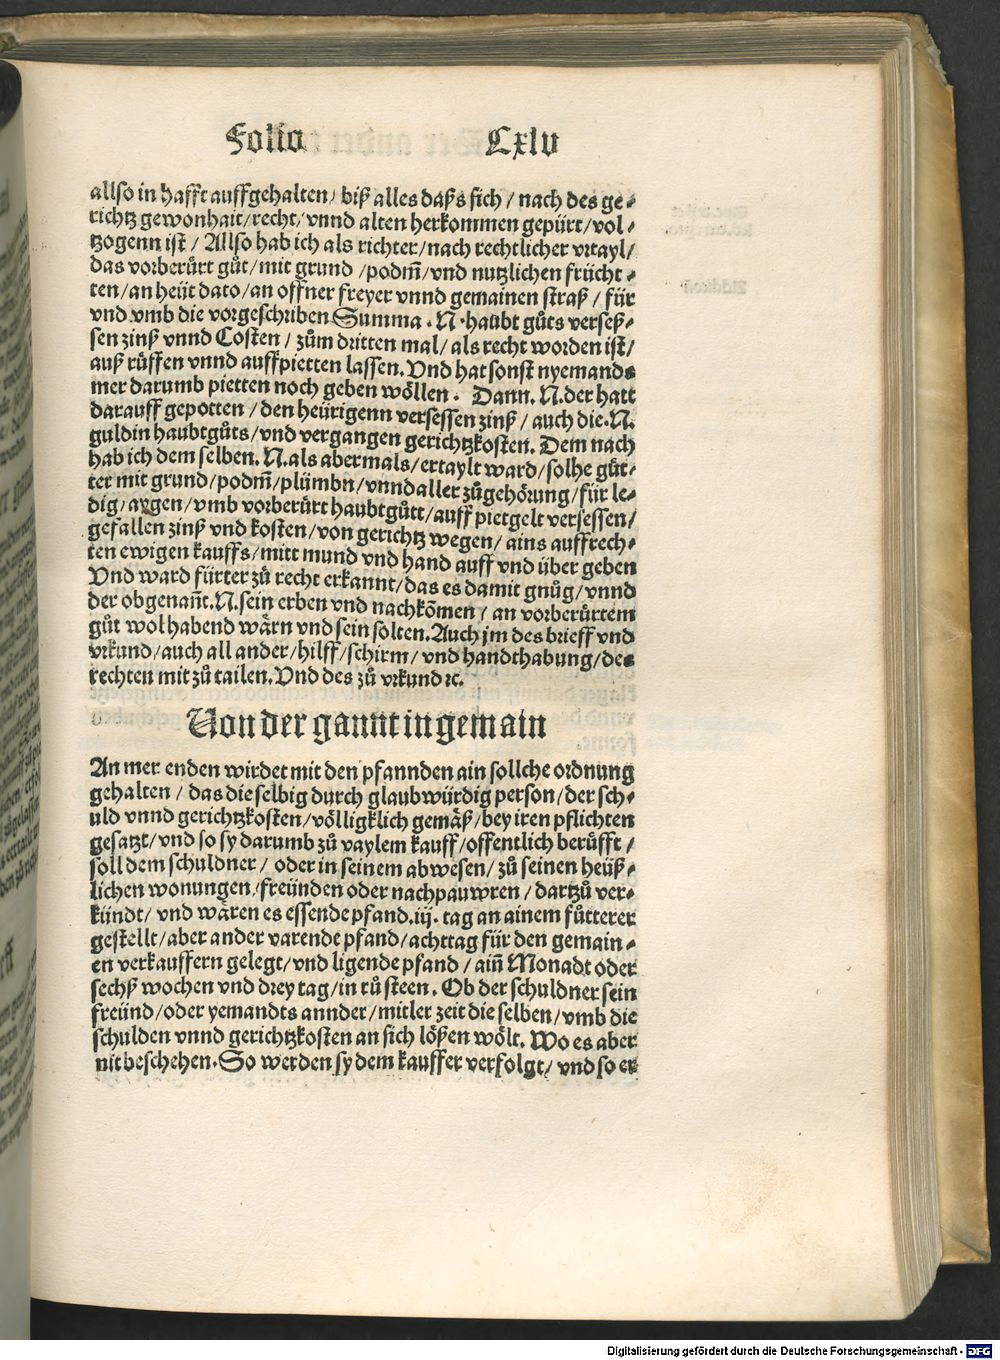 Folio Cxlv
allso in hafft auffgehalten/ biß alles daßs sich / nach des ge⸗
richtz gewonhait/ recht/ vnnd alten herkommen gepürt/ vol⸗
tzogenn ist / Allso hab ich als richter/ nach rechtlicher vrtayl/
das vorberůrt gůt/ mit grund /podm̃/ vnd nutzlichen frücht⸗
ten/ an heüt dato/ an offner freyer vnnd gemainen straß / für
vnd vmb die vorgeschriben Summa . N. haubt gůts verseß⸗
sen zinß vnnd Costen / zům dritten mal/ als recht worden ist/
auß růffen vnnd auffpietten lassen. Vnd hat sonst nyemands
mer darumb pietten noch geben wöllen . Dann. N. der hatt
darauff gepotten / den heürigenn versessen zinß / auch die. N.
guldin haubtgůts/ vnd vergangen gerichtzkosten. Dem nach
hab ich dem selben. N. als abermals/ ertaylt ward/ solhe gůt⸗
ter mit grund/ podm̃/ plůmbn/ vnnd aller zůgehörung/ für le⸗
dig/ aygen/ vmb vorberůrt haubtgůtt/ auff pietgelt versessen/
gefallen zinß vnd kosten/ von gerichtz wegen/ ains auffrech⸗
ten ewigen kauffs/ mitt mund vnd hand auff vnd über geben
Vnd ward fürter zů recht erkannt/ das es damit gnůg/ vnnd
der obgenañt. N. sein erben vnd nachkõmen / an vorberůrtem
gůt wol habend wårn vnd sein solten. Auch jm des brieff vnd
vrkund/ auch all ander/ hilff/ schirm/ vnd handthabung/ des
rechten mit zů tailen. Vnd des zů vrkund ꝛc.
Von der gannt in gemain
An mer enden wirdet mit den pfannden ain sollche ordnung
gehalten / das die selbig durch glaubwürdig person/ der sch⸗
uld vnnd gerichtzkosten/ völligklich gemåß/ bey iren pflichten
gesatzt/ vnd so sy darumb zů vaylem kauff/ offentlich berůfft /
soll dem schuldner / oder in seinem abwesen/ zů seinen heüß⸗
lichen wonungen/ freünden oder nachpauwren / dartzů ver⸗
kündt/ vnd wåren es essende pfand. iij. tag an ainem fůtterer
gestellt/ aber ander varende pfand/ acht tag für den gemain⸗
en verkauffern gelegt/ vnd ligende pfand / aiñ Monadt oder
sechß wochen vnd drey tag/ in rů steen. Ob der schuldner sein
freünd/ oder yemandts annder/ mitler zeit die selben/ vmb die
schulden vnnd gerichtzkosten an sich lößen wölt. Wo es aber
nit beschehen. So werden sy dem kauffer verfolgt/ vnd so er
Digitalisierung gefördert durch die Deutsche Forschungsgemeinschaft - DFG